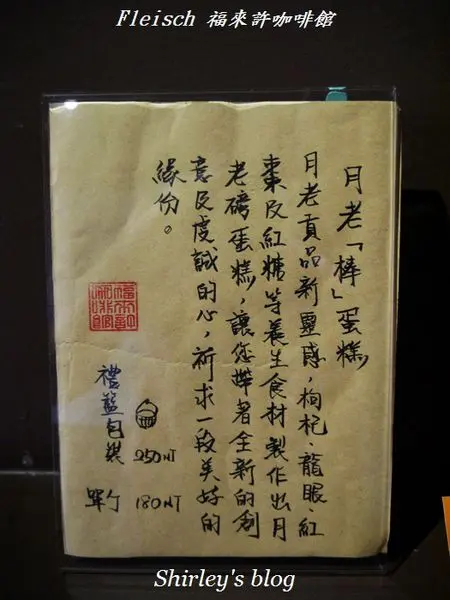 Fleisch 福來許咖啡館
月老「棒」蛋糕
月老貢品新靈感，枸杞、龍眼、紅
棗及紅糖等養生食材製作出月
老磚蛋糕，讓您帶著全新的創
意及虔誠的心，祈求一段美好的
緣份。
福來許咖啡館
禮籃包裝 250NT
單個 180NT
Shirley's blog